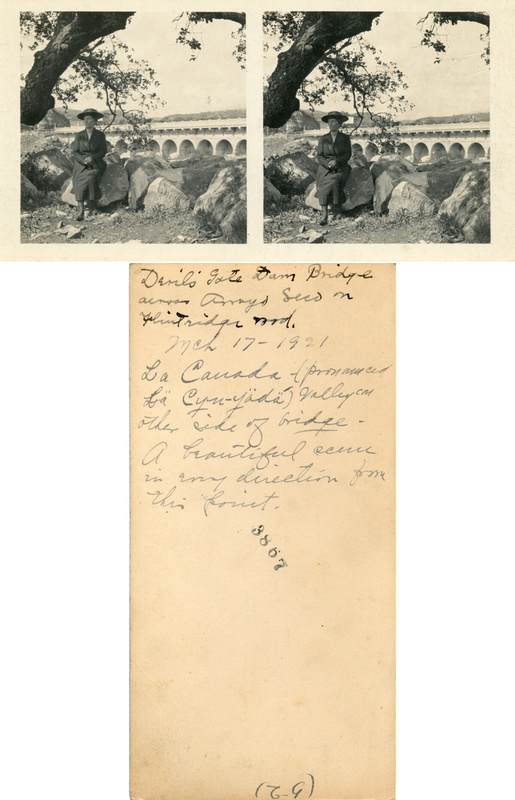 Devil's Gate Dam Bridge
across Arroyo Seco on
Flintridge rod.
Mch 17-1921
La Canada - (pronounced
Lä Cyn-yädä) Valley on
other side of bridge -
A beautiful scene
in every direction from
this point.
3857
(5-2)